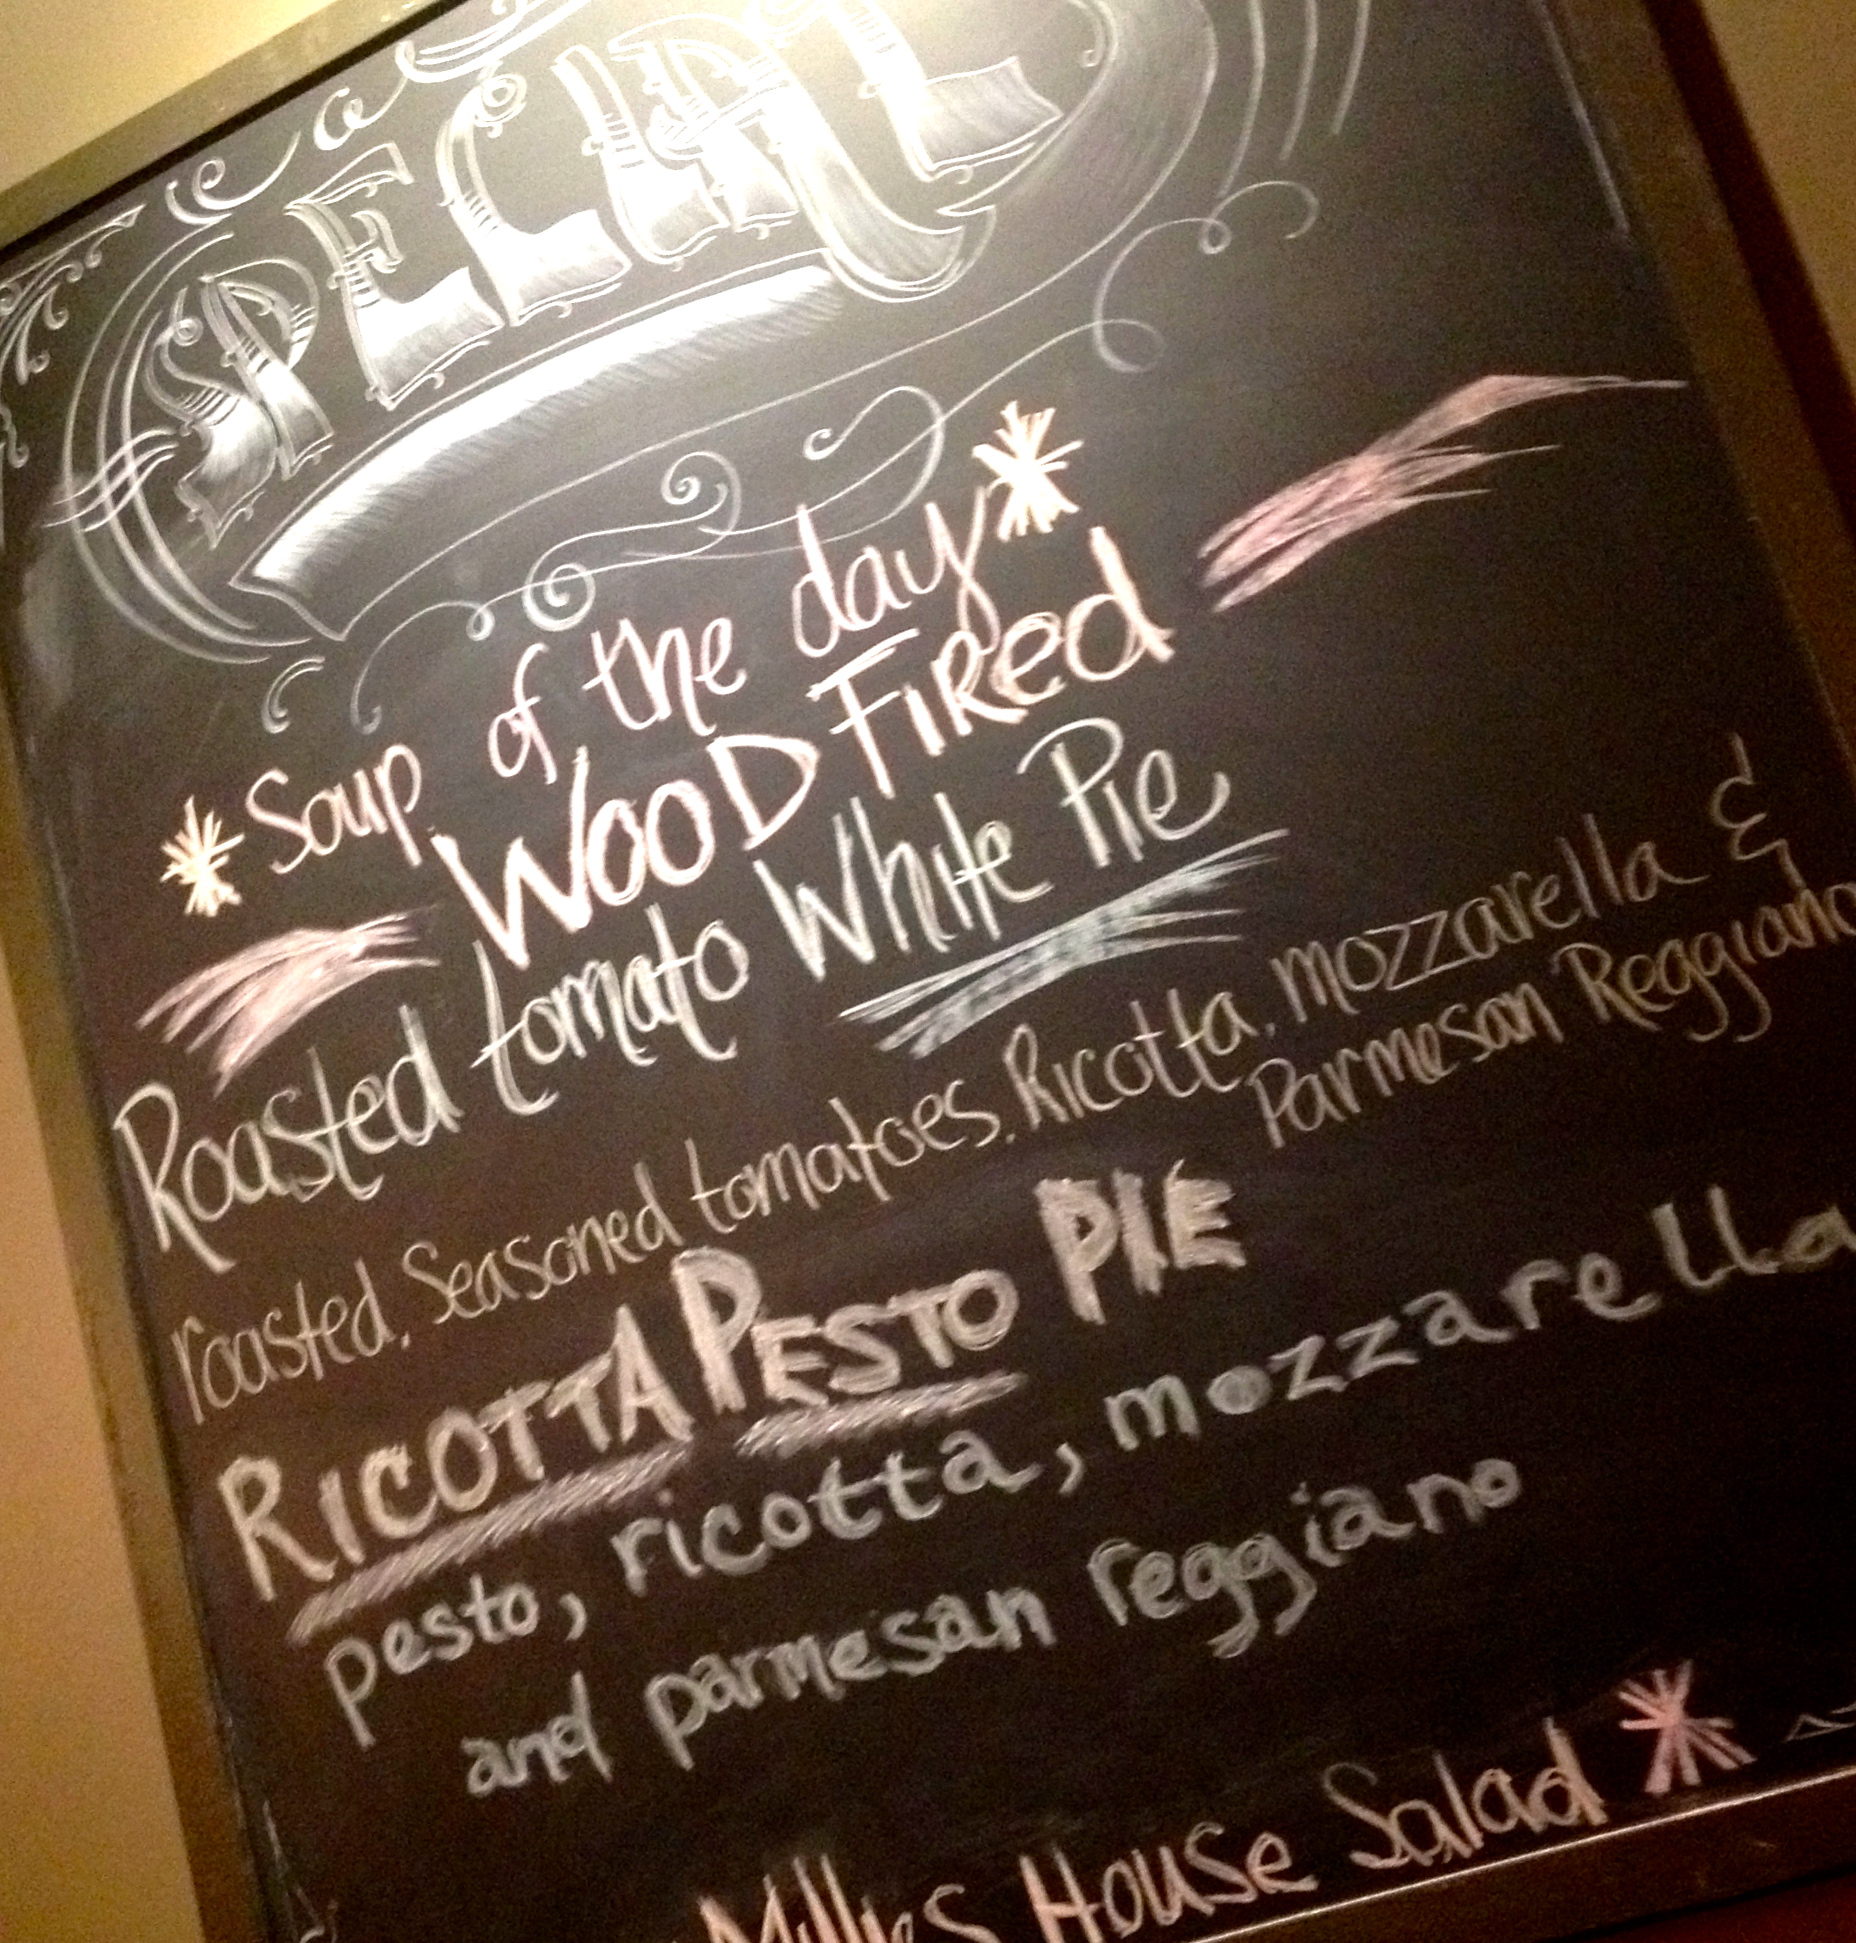 SPECIAL
*Soup of the day*
WOOD FIRed
Roasted tomato White Pie
roasted, Seasoned tomatoes, Ricotta, mozzarella &
Parmesan Reggiano
RICOTTA PESTO PIE
pesto, ricotta, mozzarella
and parmesan reggiano
Millies House Salad *